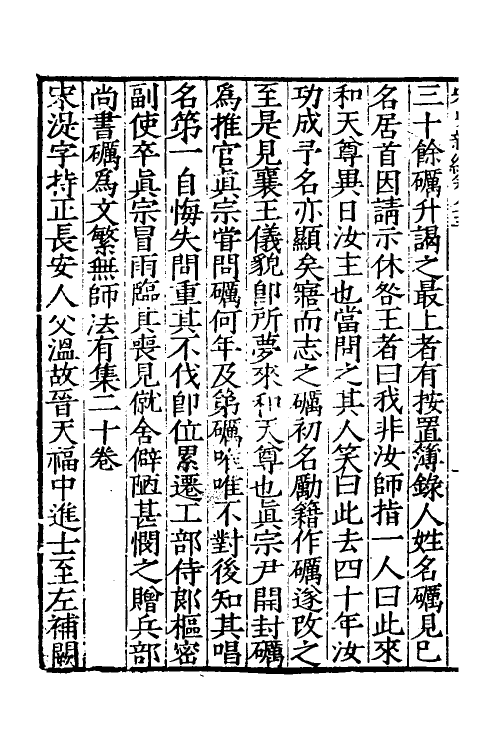 三十餘礪升謁之最上者有按置簿錄人姓名礪見已
名居首因請示休咎王者曰我非汝師指一人曰此來
和天尊異日汝主也當問之其人笑曰此去四十年汝
功成予名亦顯矣寤而志之礪初名勵籍作礪遂改之
至是見襄王儀貌卽所夢來和天尊也眞宗尹開封礪
爲推官眞宗甞問礪何年及第礪唯唯不對後知其唱
名第一自悔失問重其不伐卽位累遷工部侍郞樞密
副使卒眞宗冒雨臨其喪見僦舍僻陋甚憫之贈兵部
尚書礪爲文繁無師法有集二十卷
宋湜字持正長安人父溫故晉天福中進士至左補闕